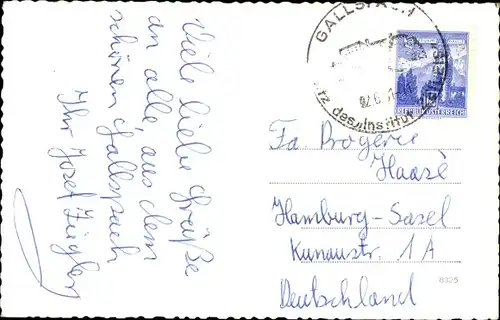 Viele liebe Grüße
an alle, aus dem
schönen Gallspach
Ihr Josef Ziegler
GALLSPACH
des Institut Zeileis
REPUBLIK ÖSTERREICH
Fa. Drogerie
Haase
Hamburg-Sasel
Kunaustr. 1 A
Deutschland
8325